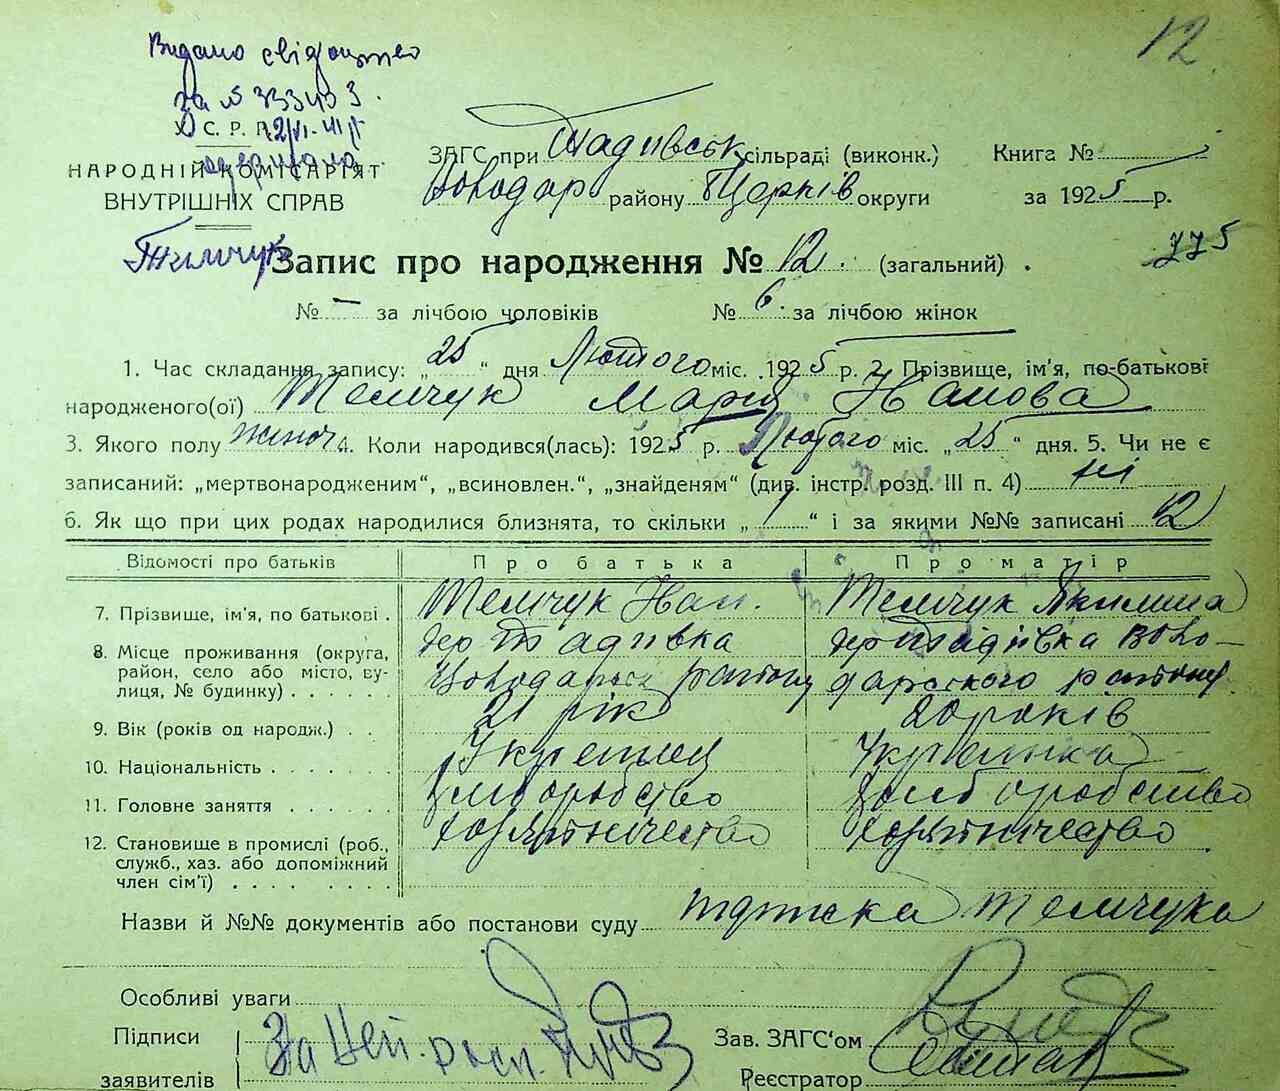 12
Видано свідоцтво
за № 333403.
У. С. Р. Р.
НАРОДНІЙ КОМІСАРІЯТ
ВНУТРІШНІХ СПРАВ
ЗАГС при Тадіївськ сільраді (виконк.) Книга №
Володар району Б Церків округи за 1925 р.
Темчук
Запис про народження № 12. (загальний).
775
№ – за лічбою чоловіків № 6 за лічбою жінок
1. Час складання запису: „25“ дня Лютого міс. 1925 р. 2. Прізвище, ім'я, по-батькові
народженого(ої) Темчук Марія Іванова
3. Якого полу жіноч 4. Коли народився(лась): 1925 р. Лютого міс. „25“ дня. 5. Чи не є
записаний: „мертвонародженим“, „всиновлен.“, „знайденям“ (див. інстр. розд. III п. 4) ні
6. Як що при цих родах народилися близнята, то скільки „1“ і за якими №№ записані 12
Відомості про батьків Про батька Про матір
7. Прізвище, ім'я, по батькові. Темчук Іван. Темчук Якилина
8. Місце проживання (округа, район, село або місто, вулиця, № будинку) дер Тадіївка дер Тадіївка Воло-
Володарськ району дарського району
9. Вік (років од народж.) 21 рік 20 років
10. Національність Українец Українка
11. Головне заняття хліборобство хліборобство
12. Становище в промислі (роб., служб., хаз. або допоміжний член сім'ї)
Назви й №№ документів або постанови суду Темчука
Особливі уваги
Підписи
заявителів За неп. росп.
Зав. ЗАГС'ом
Реєстратор